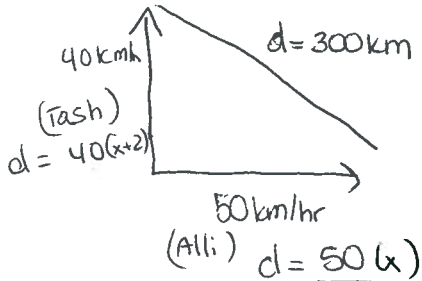 40kmh
d=300km
(Tash)
d= 40(x+2)
50km/hr
(Alli) d= 50(x)